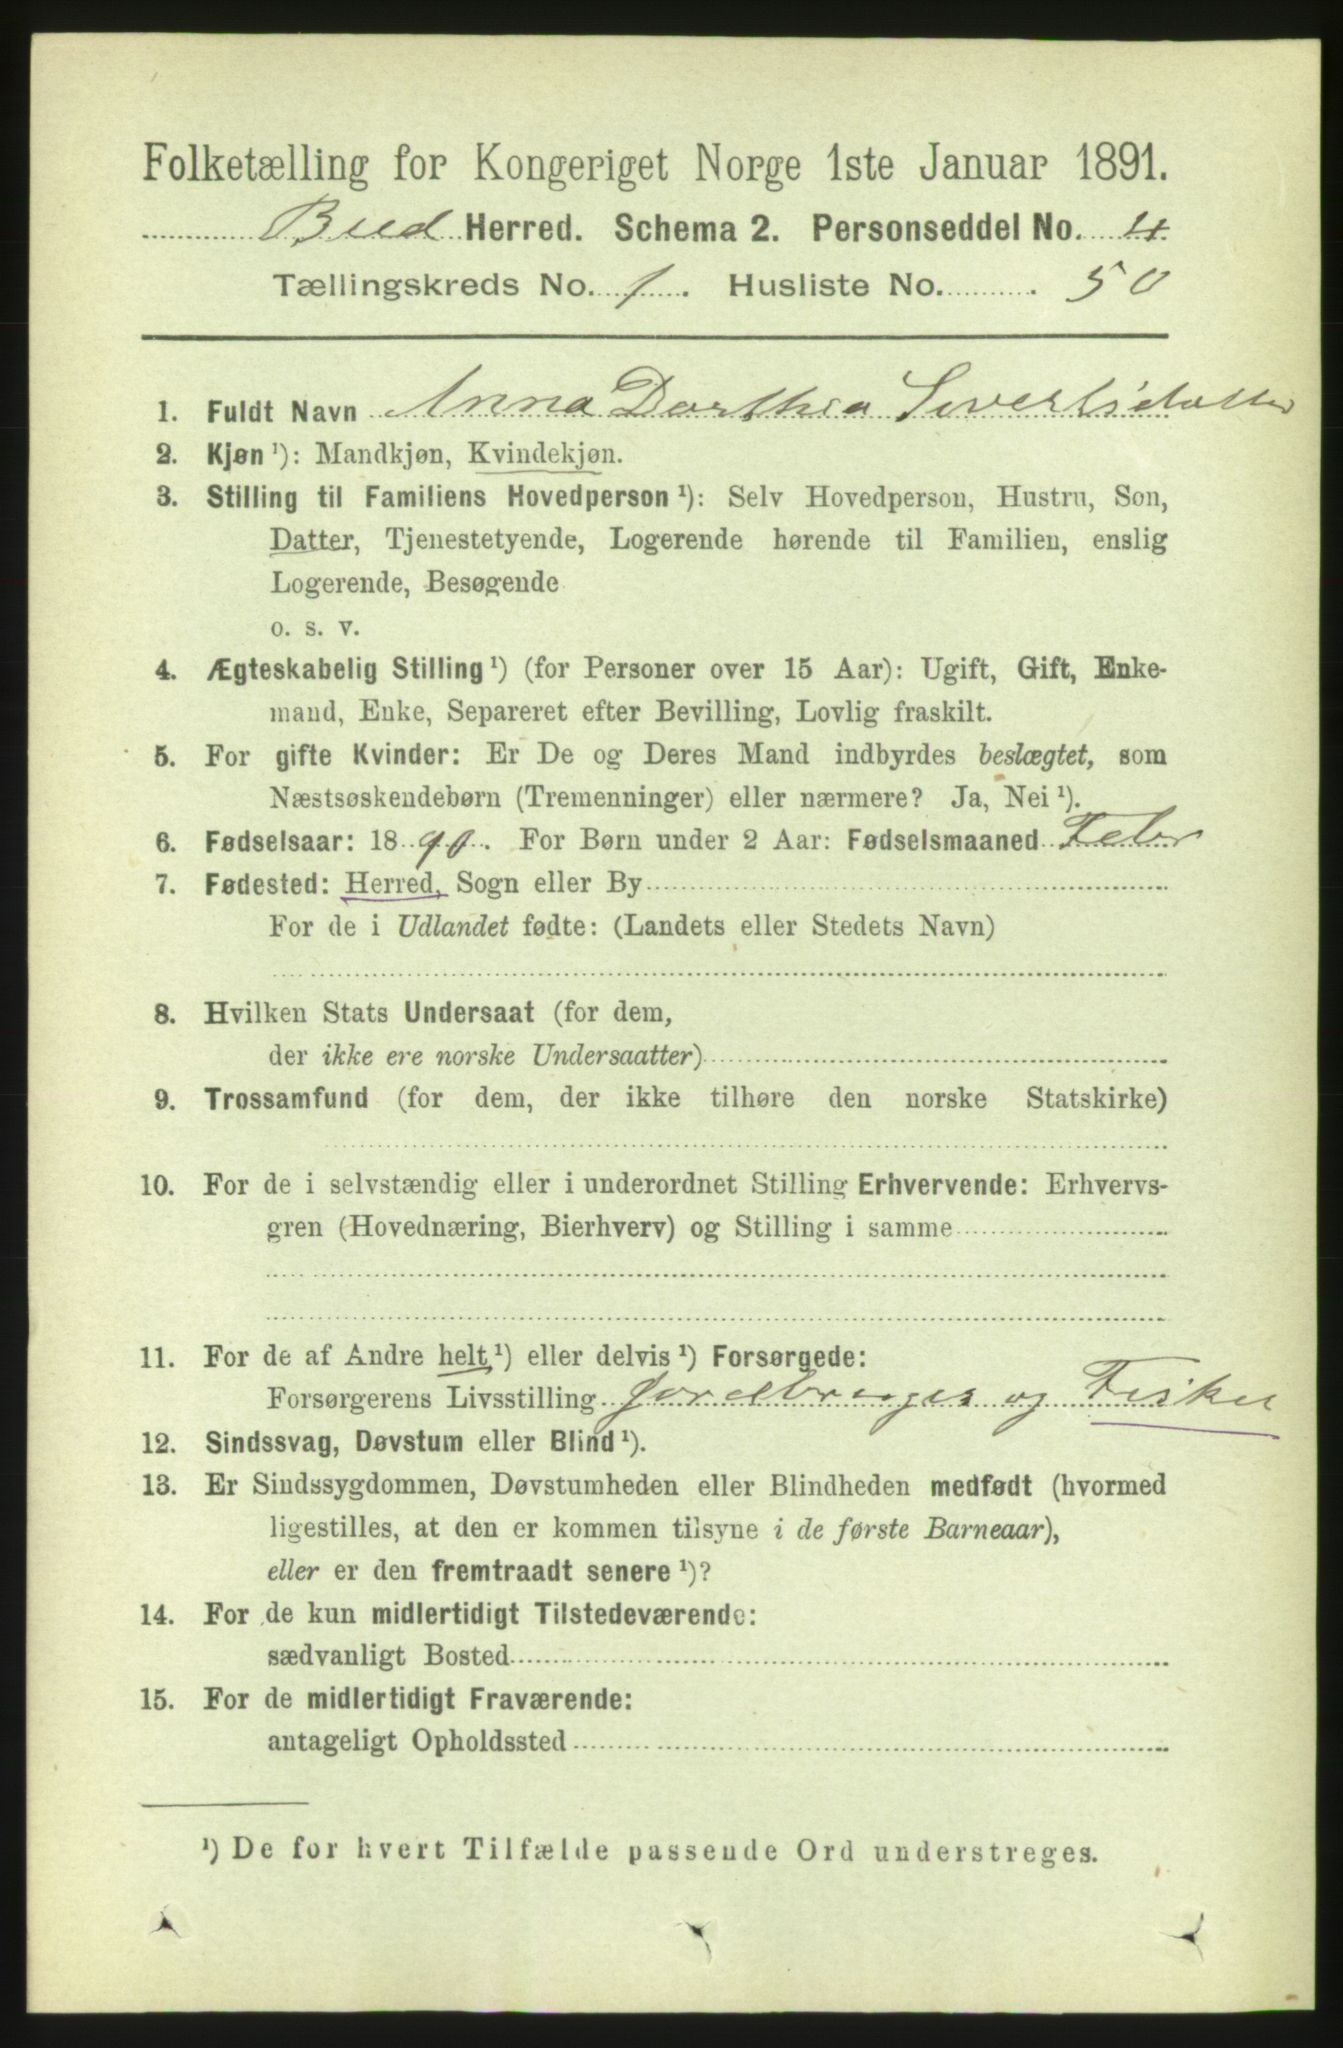 Folketælling for Kongeriget Norge 1ste Januar 1891.
Bud Herred. Schema 2. Personseddel No. 4.
Tællingskreds No. 1. Husliste No. 50
1. Fuldt Navn Anna Dorthea Sivertsdatter
2. Kjøn ¹): Mandkjøn, Kvindekjøn.
3. Stilling til Familiens Hovedperson ¹): Selv Hovedperson, Hustru, Søn,
Datter, Tjenestetyende, Logerende hørende til Familien, enslig
Logerende, Besøgende
o. s. v.
4. Ægteskabelig Stilling ¹) (for Personer over 15 Aar): Ugift, Gift, Enke-
mand, Enke, Separeret efter Bevilling, Lovlig fraskilt.
5. For gifte Kvinder: Er De og Deres Mand indbyrdes beslægtet, som
Næstsøskendebørn (Tremenninger) eller nærmere? Ja, Nei ¹).
6. Fødselsaar: 1890. For Børn under 2 Aar: Fødselsmaaned Febr
7. Fødested: Herred, Sogn eller By
For de i Udlandet fødte: (Landets eller Stedets Navn)
8. Hvilken Stats Undersaat (for dem,
der ikke ere norske Undersaatter)
9. Trossamfund (for dem, der ikke tilhøre den norske Statskirke)
10. For de i selvstændig eller i underordnet Stilling Erhvervende: Erhvervs-
gren (Hovednæring, Bierhverv) og Stilling i samme
11. For de af Andre helt ¹) eller delvis ¹) Forsørgede:
Forsørgerens Livsstilling Jordbruger og Fisker
12. Sindssvag, Døvstum eller Blind ¹).
13. Er Sindssygdommen, Døvstumheden eller Blindheden medfødt (hvormed
ligestilles, at den er kommen tilsyne i de første Barneaar),
eller er den fremtraadt senere ¹)?
14. For de kun midlertidigt Tilstedeværende:
sædvanligt Bosted
15. For de midlertidigt Fraværende:
antageligt Opholdssted
¹) De for hvert Tilfælde passende Ord understreges.